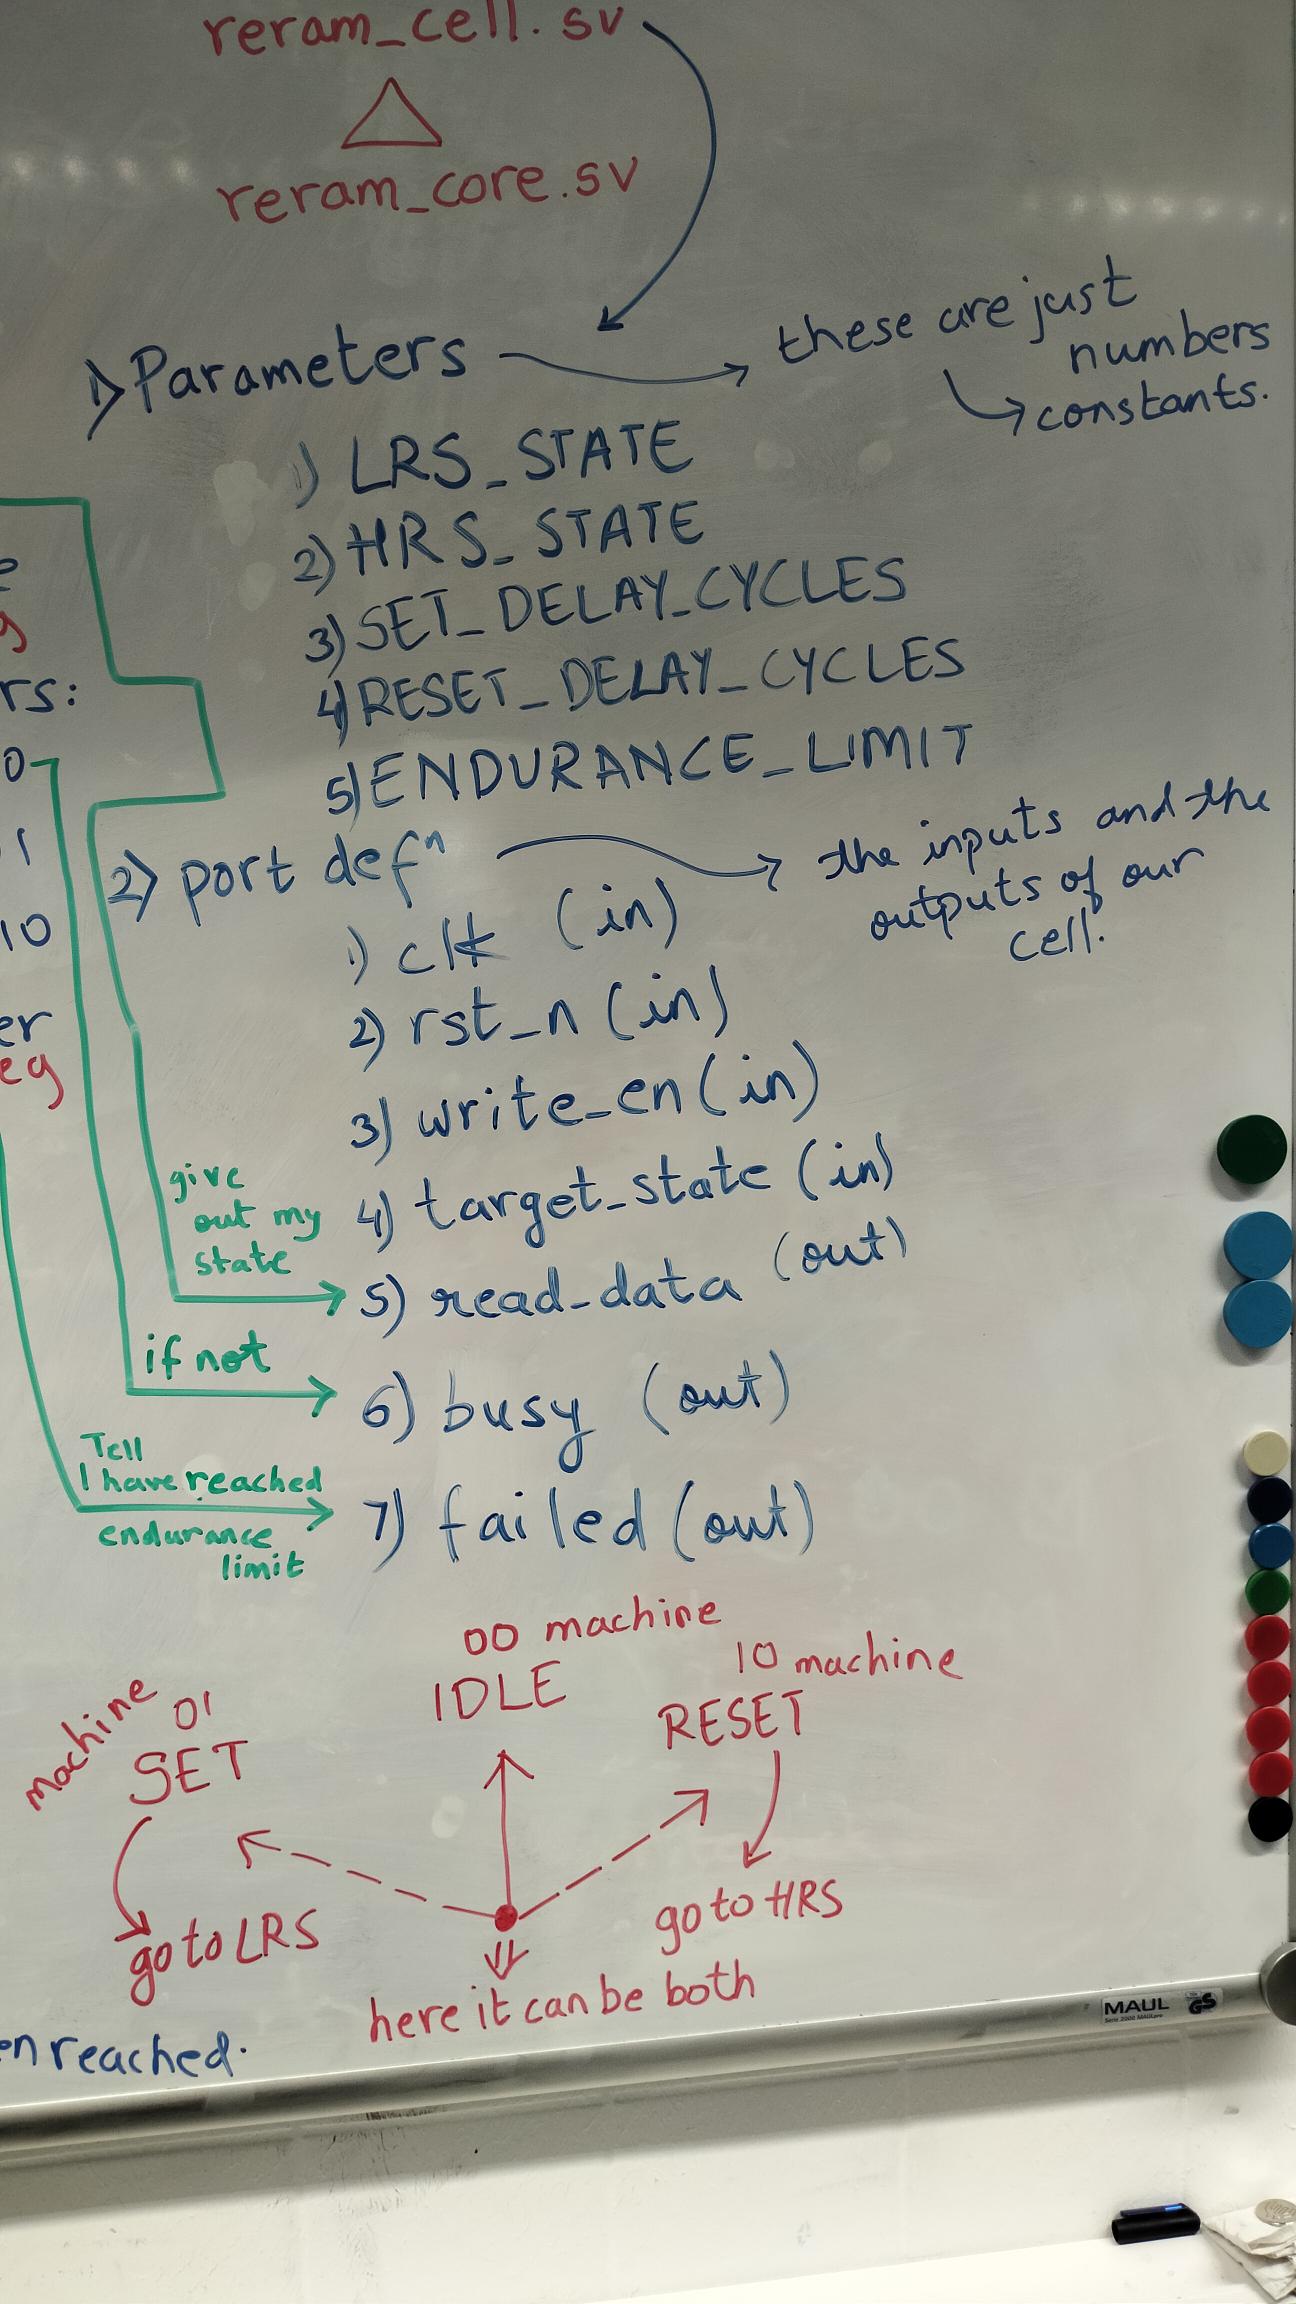 reram_cell.sv
reram_core.sv
1) Parameters
these are just
numbers
constants.
1) LRS_STATE
2) HRS_STATE
3) SET_DELAY_CYCLES
4) RESET_DELAY_CYCLES
5) ENDURANCE_LIMIT
rs:
0
1
10
er
eg
2) port defⁿ
the inputs and the
outputs of our
cell.
1) clk (in)
2) rst_n (in)
3) write_en (in)
4) target_state (in)
give
out my
state
5) read_data (out)
if not
6) busy (out)
Tell
I have reached
endurance
limit
7) failed (out)
00 machine
IDLE
10 machine
RESET
machine 01
SET
go to LRS
go to HRS
here it can be both
en reached.
MAUL
GS